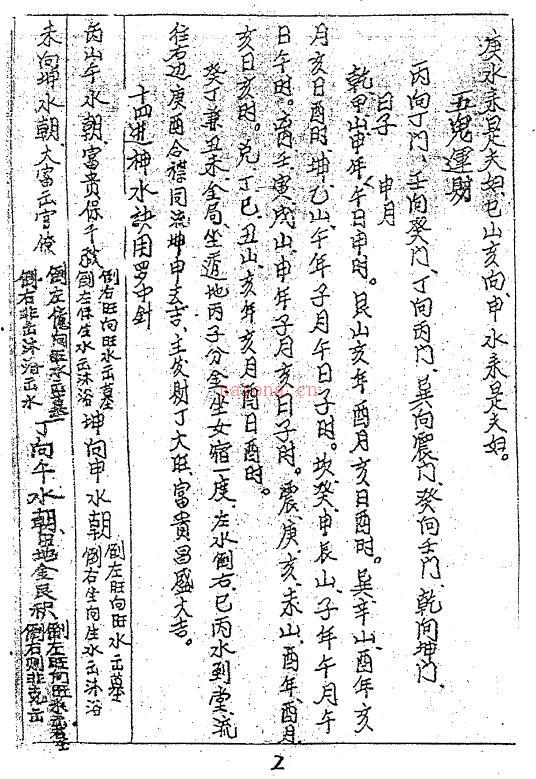 庚水来是夫妇巳山亥向申水来是夫妇。
五鬼運财
丙向丁门、壬向癸门、丁向丙门、巽向震门、癸向壬门、乾向坤门、
日子 申月
乾甲山申年午日申时。艮山亥年酉月亥日酉时。巽辛山酉年亥
月亥日酉时、坤乙山午年子月午日子时。坎癸申辰山、子年午月午
日午时。离壬寅戌山、申年子月亥日子时。震庚、亥、未山、酉年、酉月
亥日亥时。兑丁巳、丑山、亥年亥月酉日酉时。
癸丁兼丑未、全局、坐遁地丙子分金、坐女宿一度、左水倒右巳丙水到堂、流
往右边庚酉合襟同流坤申去吉、主发财丁大旺、富貴昌盛大吉。
十四进神水訣用罗中针
丙山午水朝、富貴保千秋 倒右旺向旺水出墓 倒左保生水出沐浴 坤向申水朝 倒左旺向旺水出墓 倒右生向生水出沐浴
未向坤水朝、大富出官僚 倒左 向旺水出墓 倒右非出沐浴出水 丁向午水朝 地金艮积 倒左旺向旺水出墓 倒右则非克出
nayona.cn
2